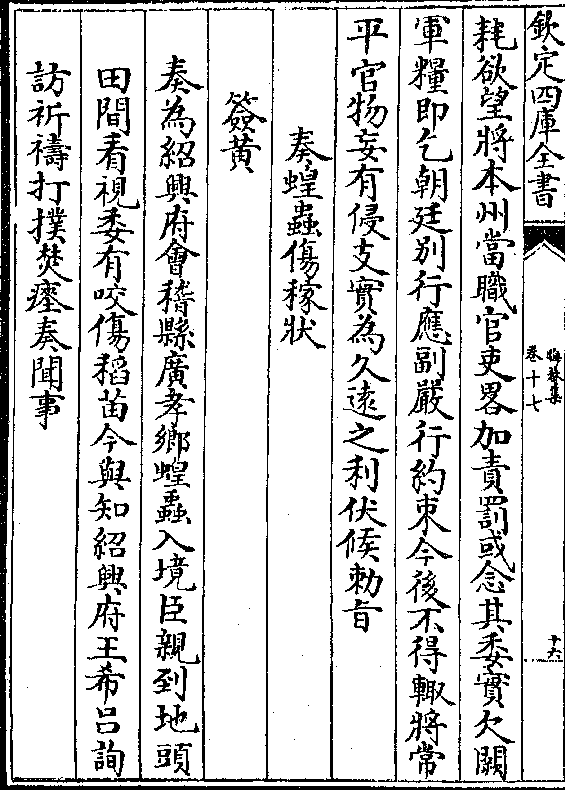 欽定四庫全書
晦菴集
卷十七
十六
耗欲望將本州當職官吏畧加責罰或念其委實欠闕
軍糧即乞朝廷别行應副嚴行約束今後不得輙將常
平官物妄有侵支實為久遠之利伏候勅旨
奏蝗蟲傷稼狀
簽黄
奏為紹興府會稽縣廣孝鄉蝗蟲入境臣親到地頭
田間看視委有咬傷稻苗今與知紹興府王希吕詢
訪祈禱打撲焚瘞奏聞事